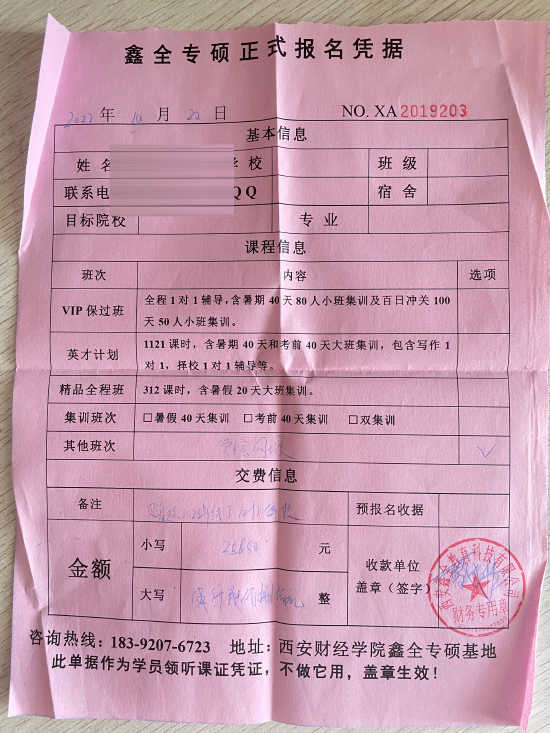 鑫全专硕正式报名凭据
2022年10月20日 NO. XA 2019203
基本信息
姓名 学校 班级
联系电 QQ 宿舍
目标院校 专业
课程信息
班次 内容 选项
VIP 保过班 全程1对1辅导,含暑期40天80人小班集训及百日冲关100
天50人小班集训。
英才计划 1121课时,含暑期40天和考前40天大班集训,包含写作1
对1,择校1对1辅导等。
精品全程班 312课时,含暑假20天大班集训。
集训班次 □暑假40天集训 □考前40天集训 □双集训
其他班次 ✓
交费信息
备注 预报名收据
金额 小写 元 收款单位
盖章(签字)
大写 整
财务专用章
咨询热线:183-9207-6723 地址:西安财经学院鑫全专硕基地
此单据作为学员领听课证凭证,不做它用,盖章生效!